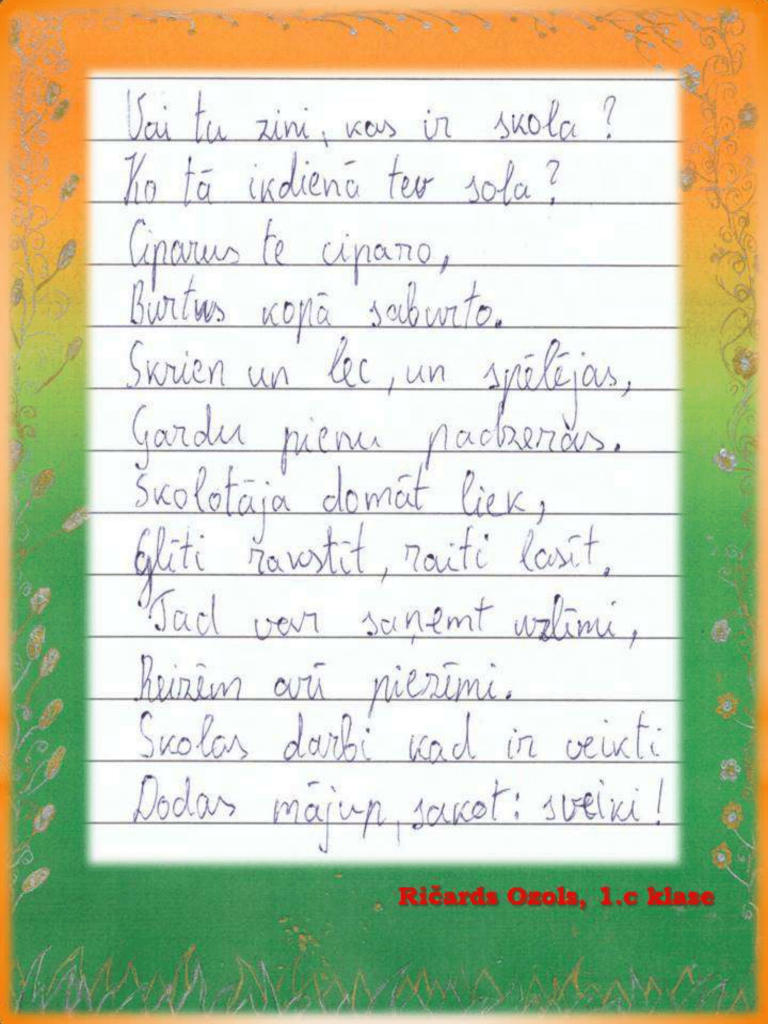 Vai tu zini, kas ir skola?
Ko tā ikdienā tev sola?
Ciparus te ciparo,
Burtus kopā saburto.
Skrien un lec, un spēlējas,
Gardu pienu padzeras.
Skolotāja domāt liek,
Glīti rakstīt, raiti lasīt.
Tad var saņemt uzlīmi,
Reizēm arī piezīmi.
Skolas darbi kad ir veikti
Dodas mājup, sakot: sveiki!
Ričards Ozols, 1.c klase